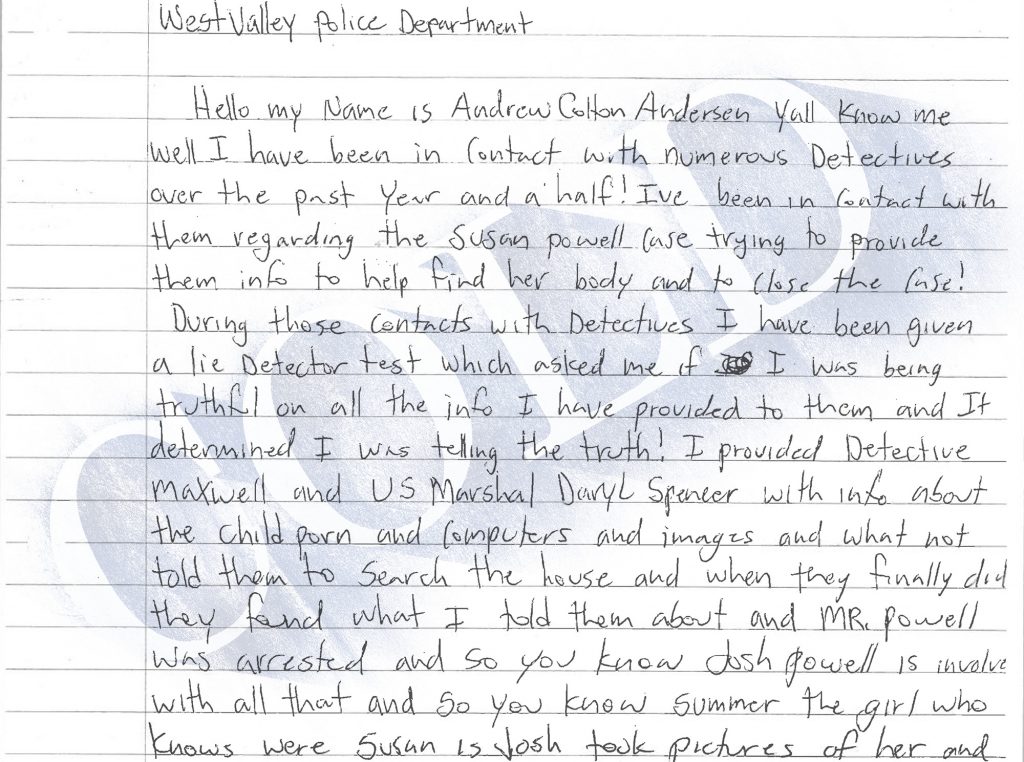 West Valley police Department
Hello my Name is Andrew Colton Andersen Yall Know me
well I have been in Contact with numerous Detectives
over the past Year and a half! Ive been in Contact with
them regarding the Susan powell Case trying to provide
them info to help find her body and to Close the Case!
During those Contacts with Detectives I have been given
a lie Detector test which asked me if I was being
truthful on all the info I have provided to them and It
determined I was telling the truth! I provided Detective
Maxwell and US Marshal Daryl Spencer with info about
the child porn and Computers and images and what not
told them to Search the house and when they finally did
they found what I told them about and MR. powell
was arrested and so you know Josh powell is involve
with all that and so you know Summer the girl who
Knows were Susan is Josh took pictures of her and
COLD